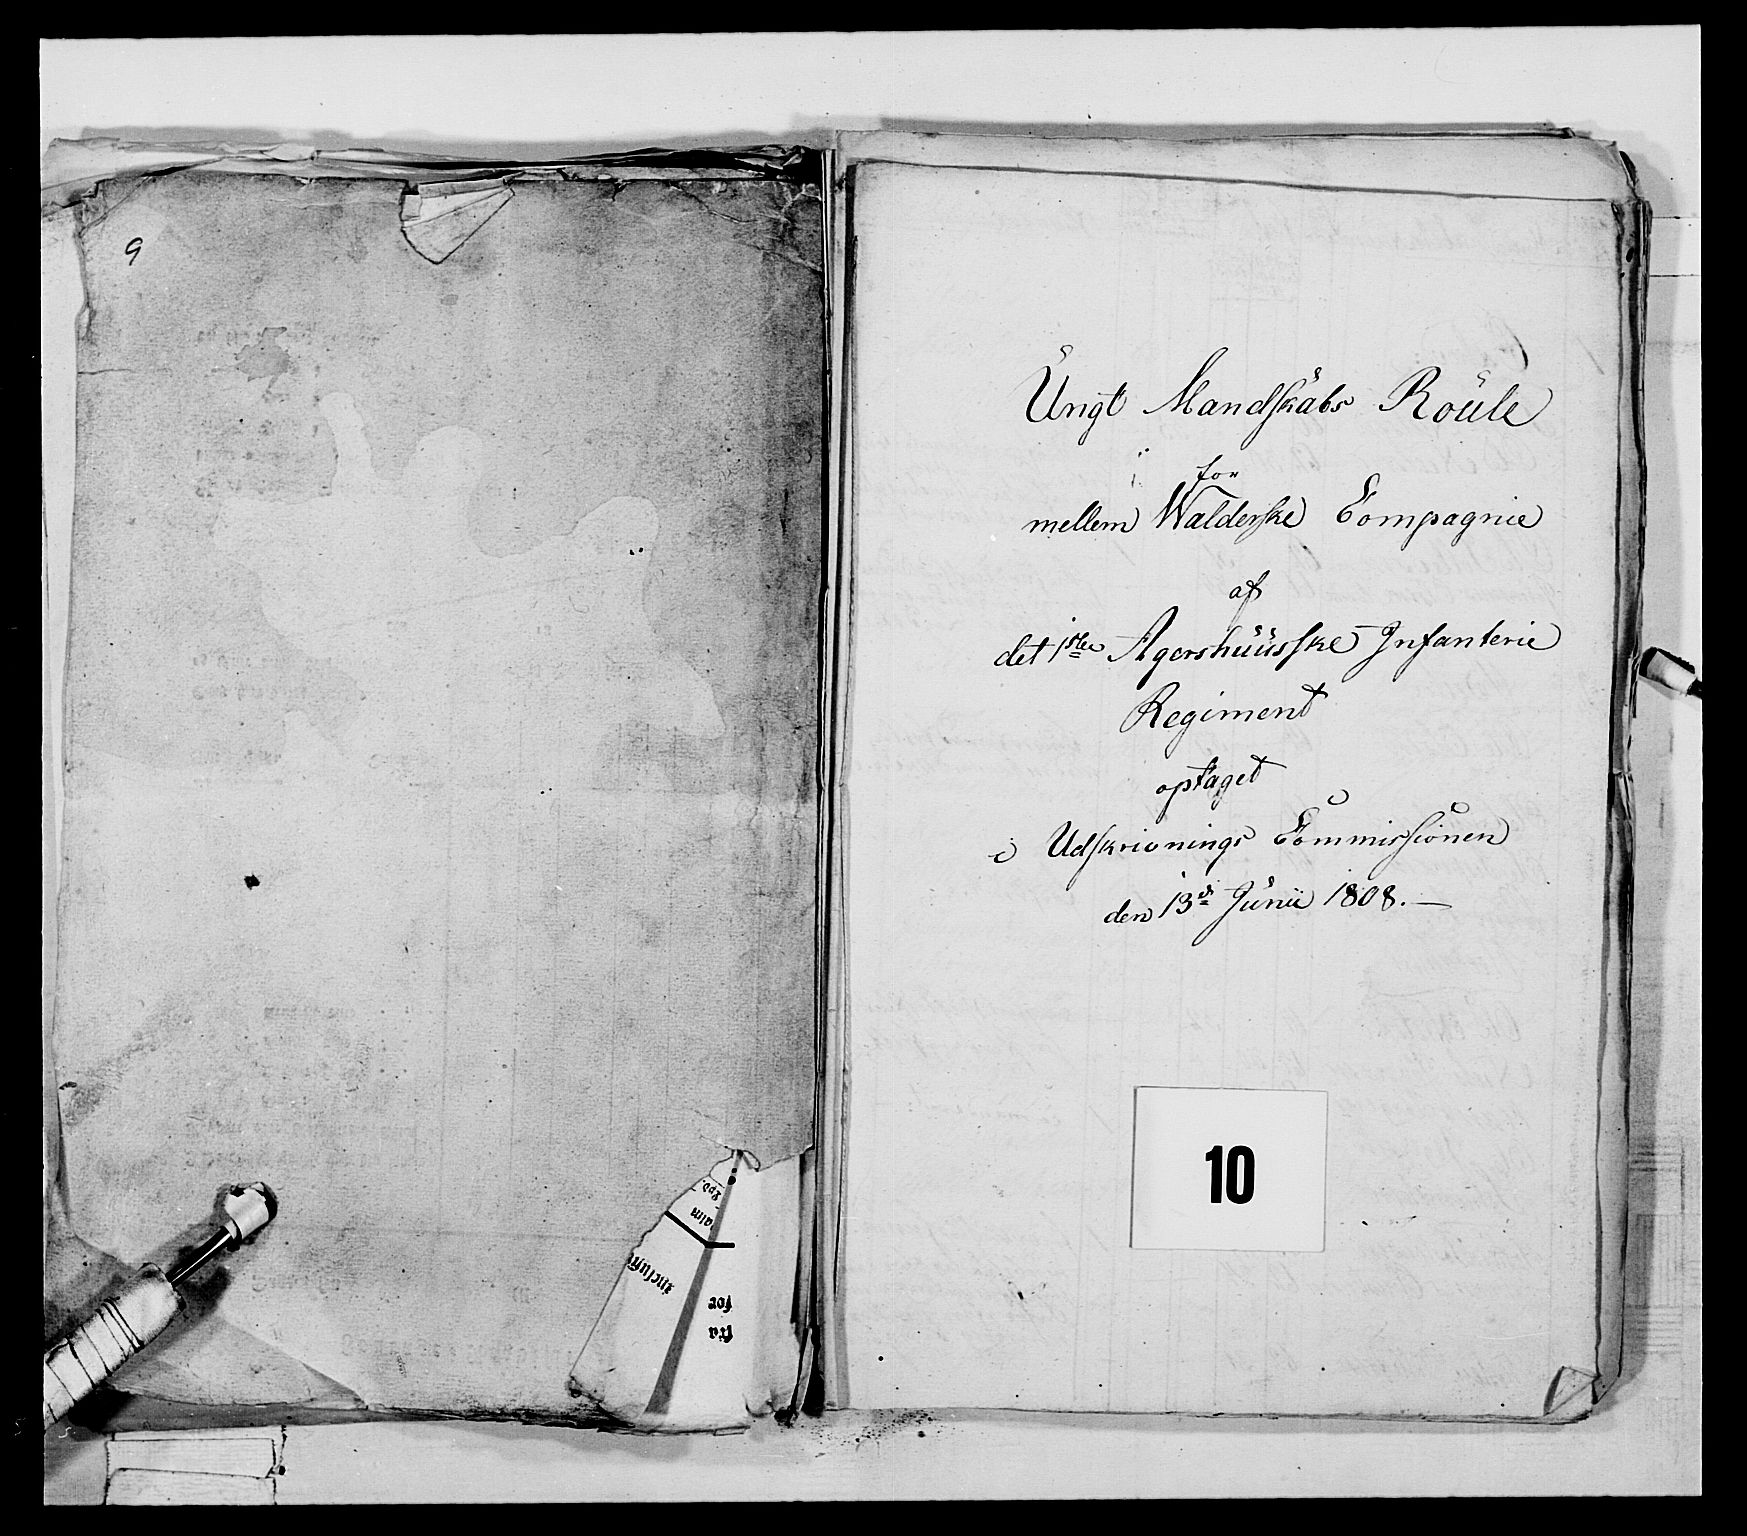 9
Ungt Mandskabs Roule
for
mellem Walderske Compagnie
af
det 1ste Agershuusske Infanterie
Regiment
optaget
i Udskrivnings Commissionen
den 13de Junii 1808.
10
inclusive
for
fra